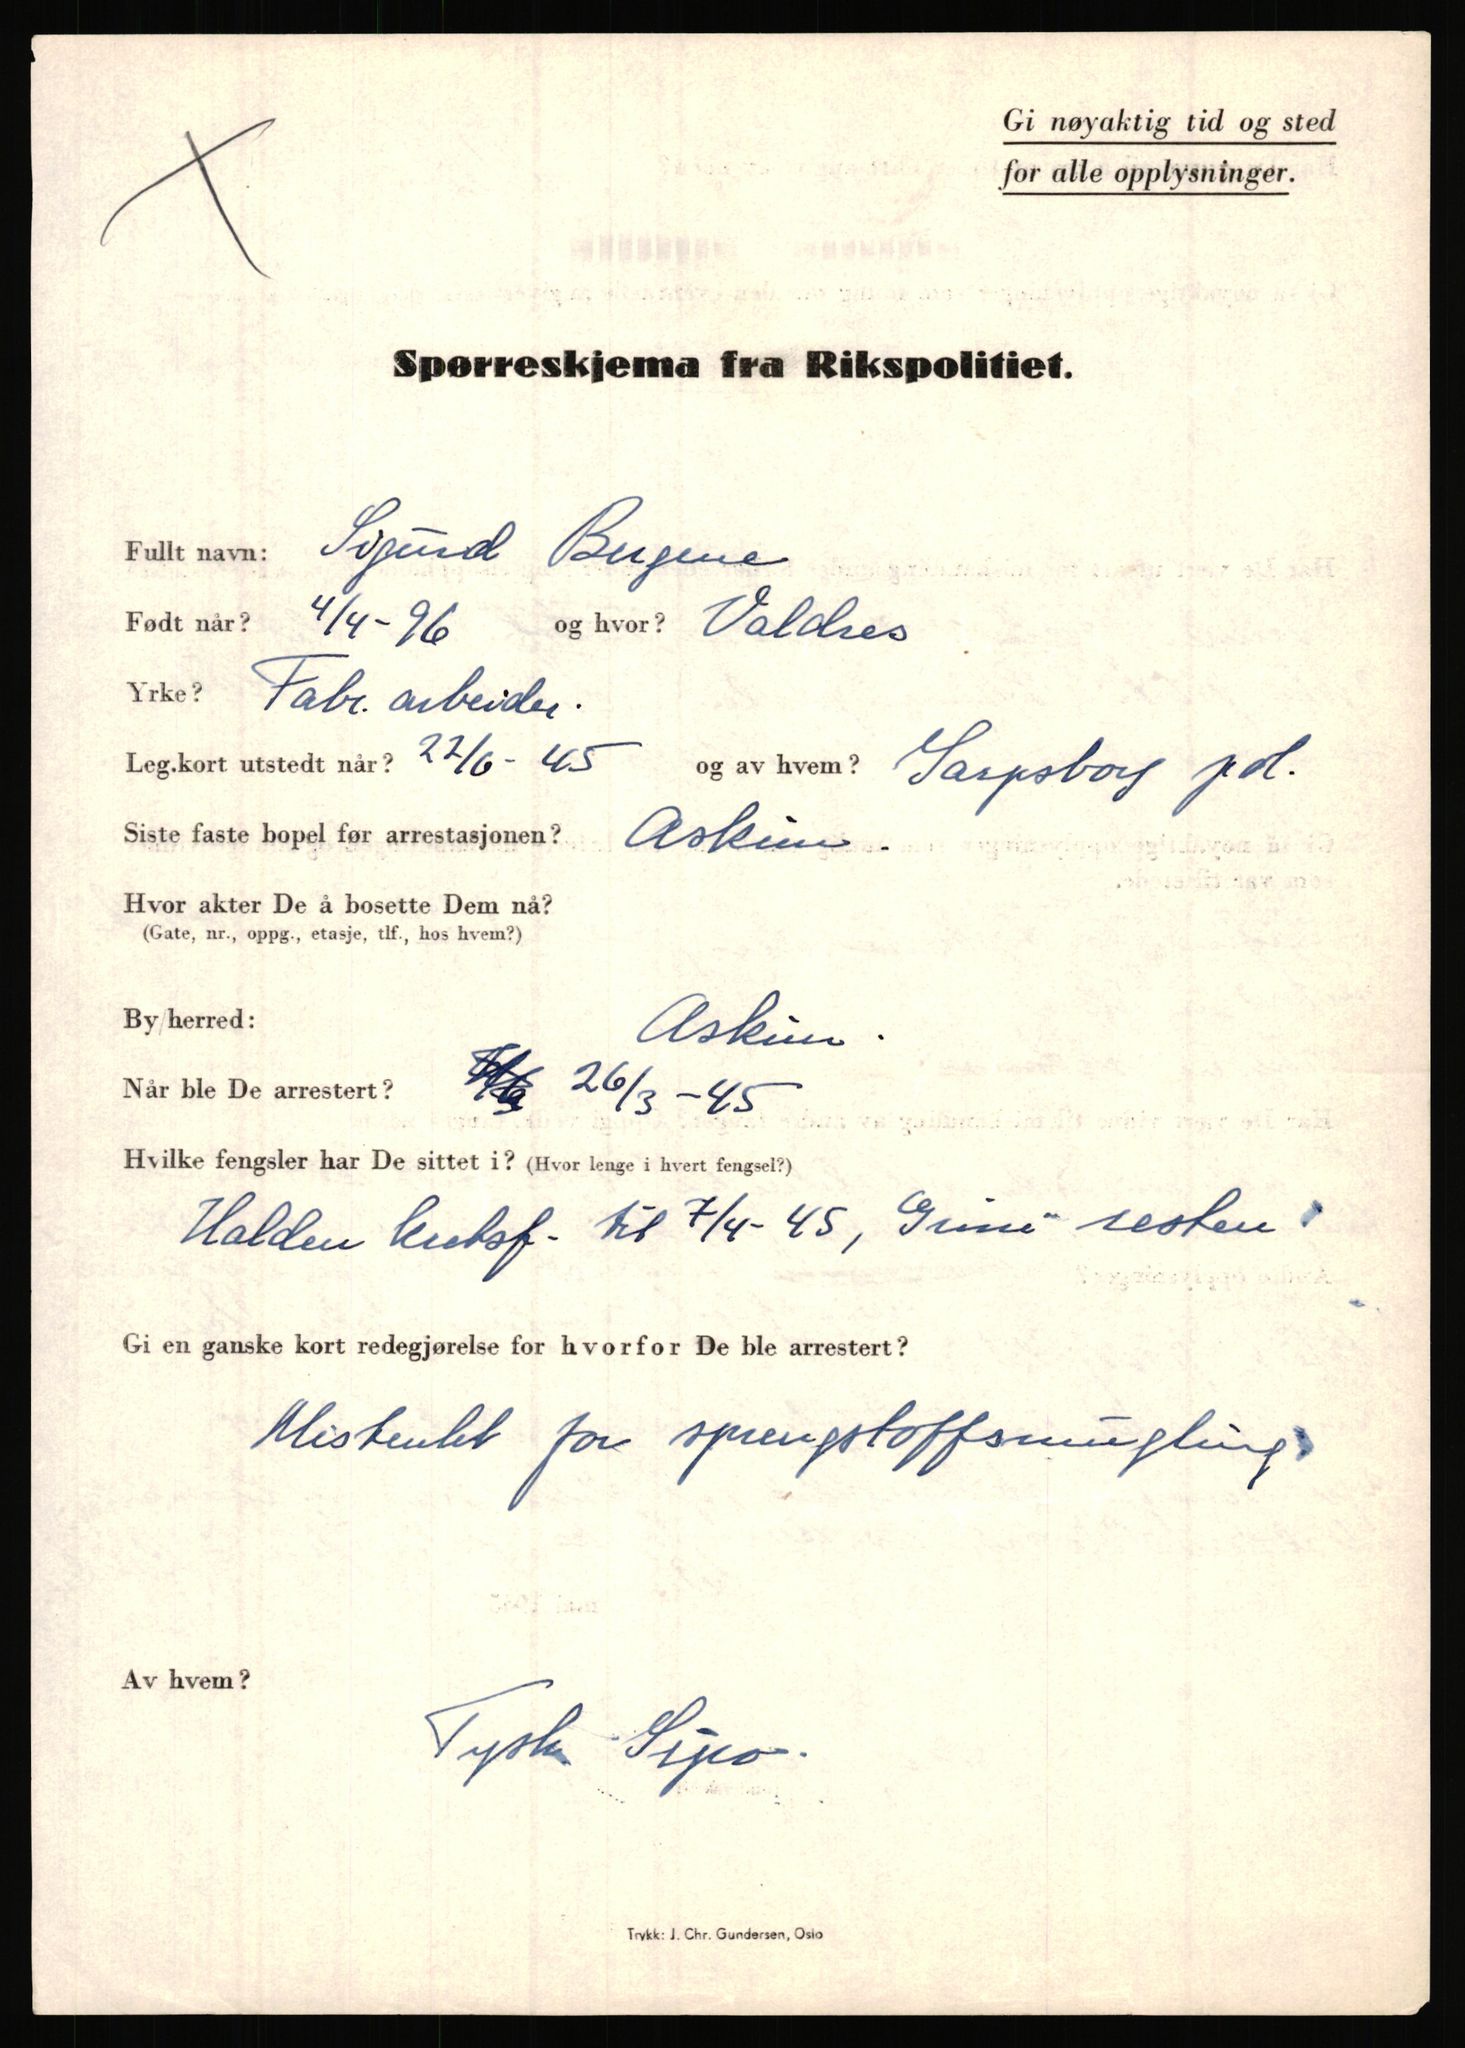 Gi nøyaktig tid og sted
for alle opplysninger.
Spørreskjema fra Rikspolitiet.
Fullt navn: Sigurd Bergene
Født når? 4/4-96 og hvor? Valdres
Yrke? Fabr. arbeider.
Leg.kort utstedt når? 22/6-45 og av hvem? Sarpsborg pol.
Siste faste bopel før arrestasjonen? Askim.
Hvor akter De å bosette Dem nå?
(Gate, nr., oppg., etasje, tlf., hos hvem?)
By/herred: Askim.
Når ble De arrestert? 26/3-45
Hvilke fengsler har De sittet i? (Hvor lenge i hvert fengsel?)
Halden kretsf. til 7/4-45, Grini resten
Gi en ganske kort redegjørelse for hvorfor De ble arrestert?
Mistenkt for sprengstoffsmugling.
Av hvem?
Tysk Sipo.
Trykk: J. Chr. Gundersen, Oslo